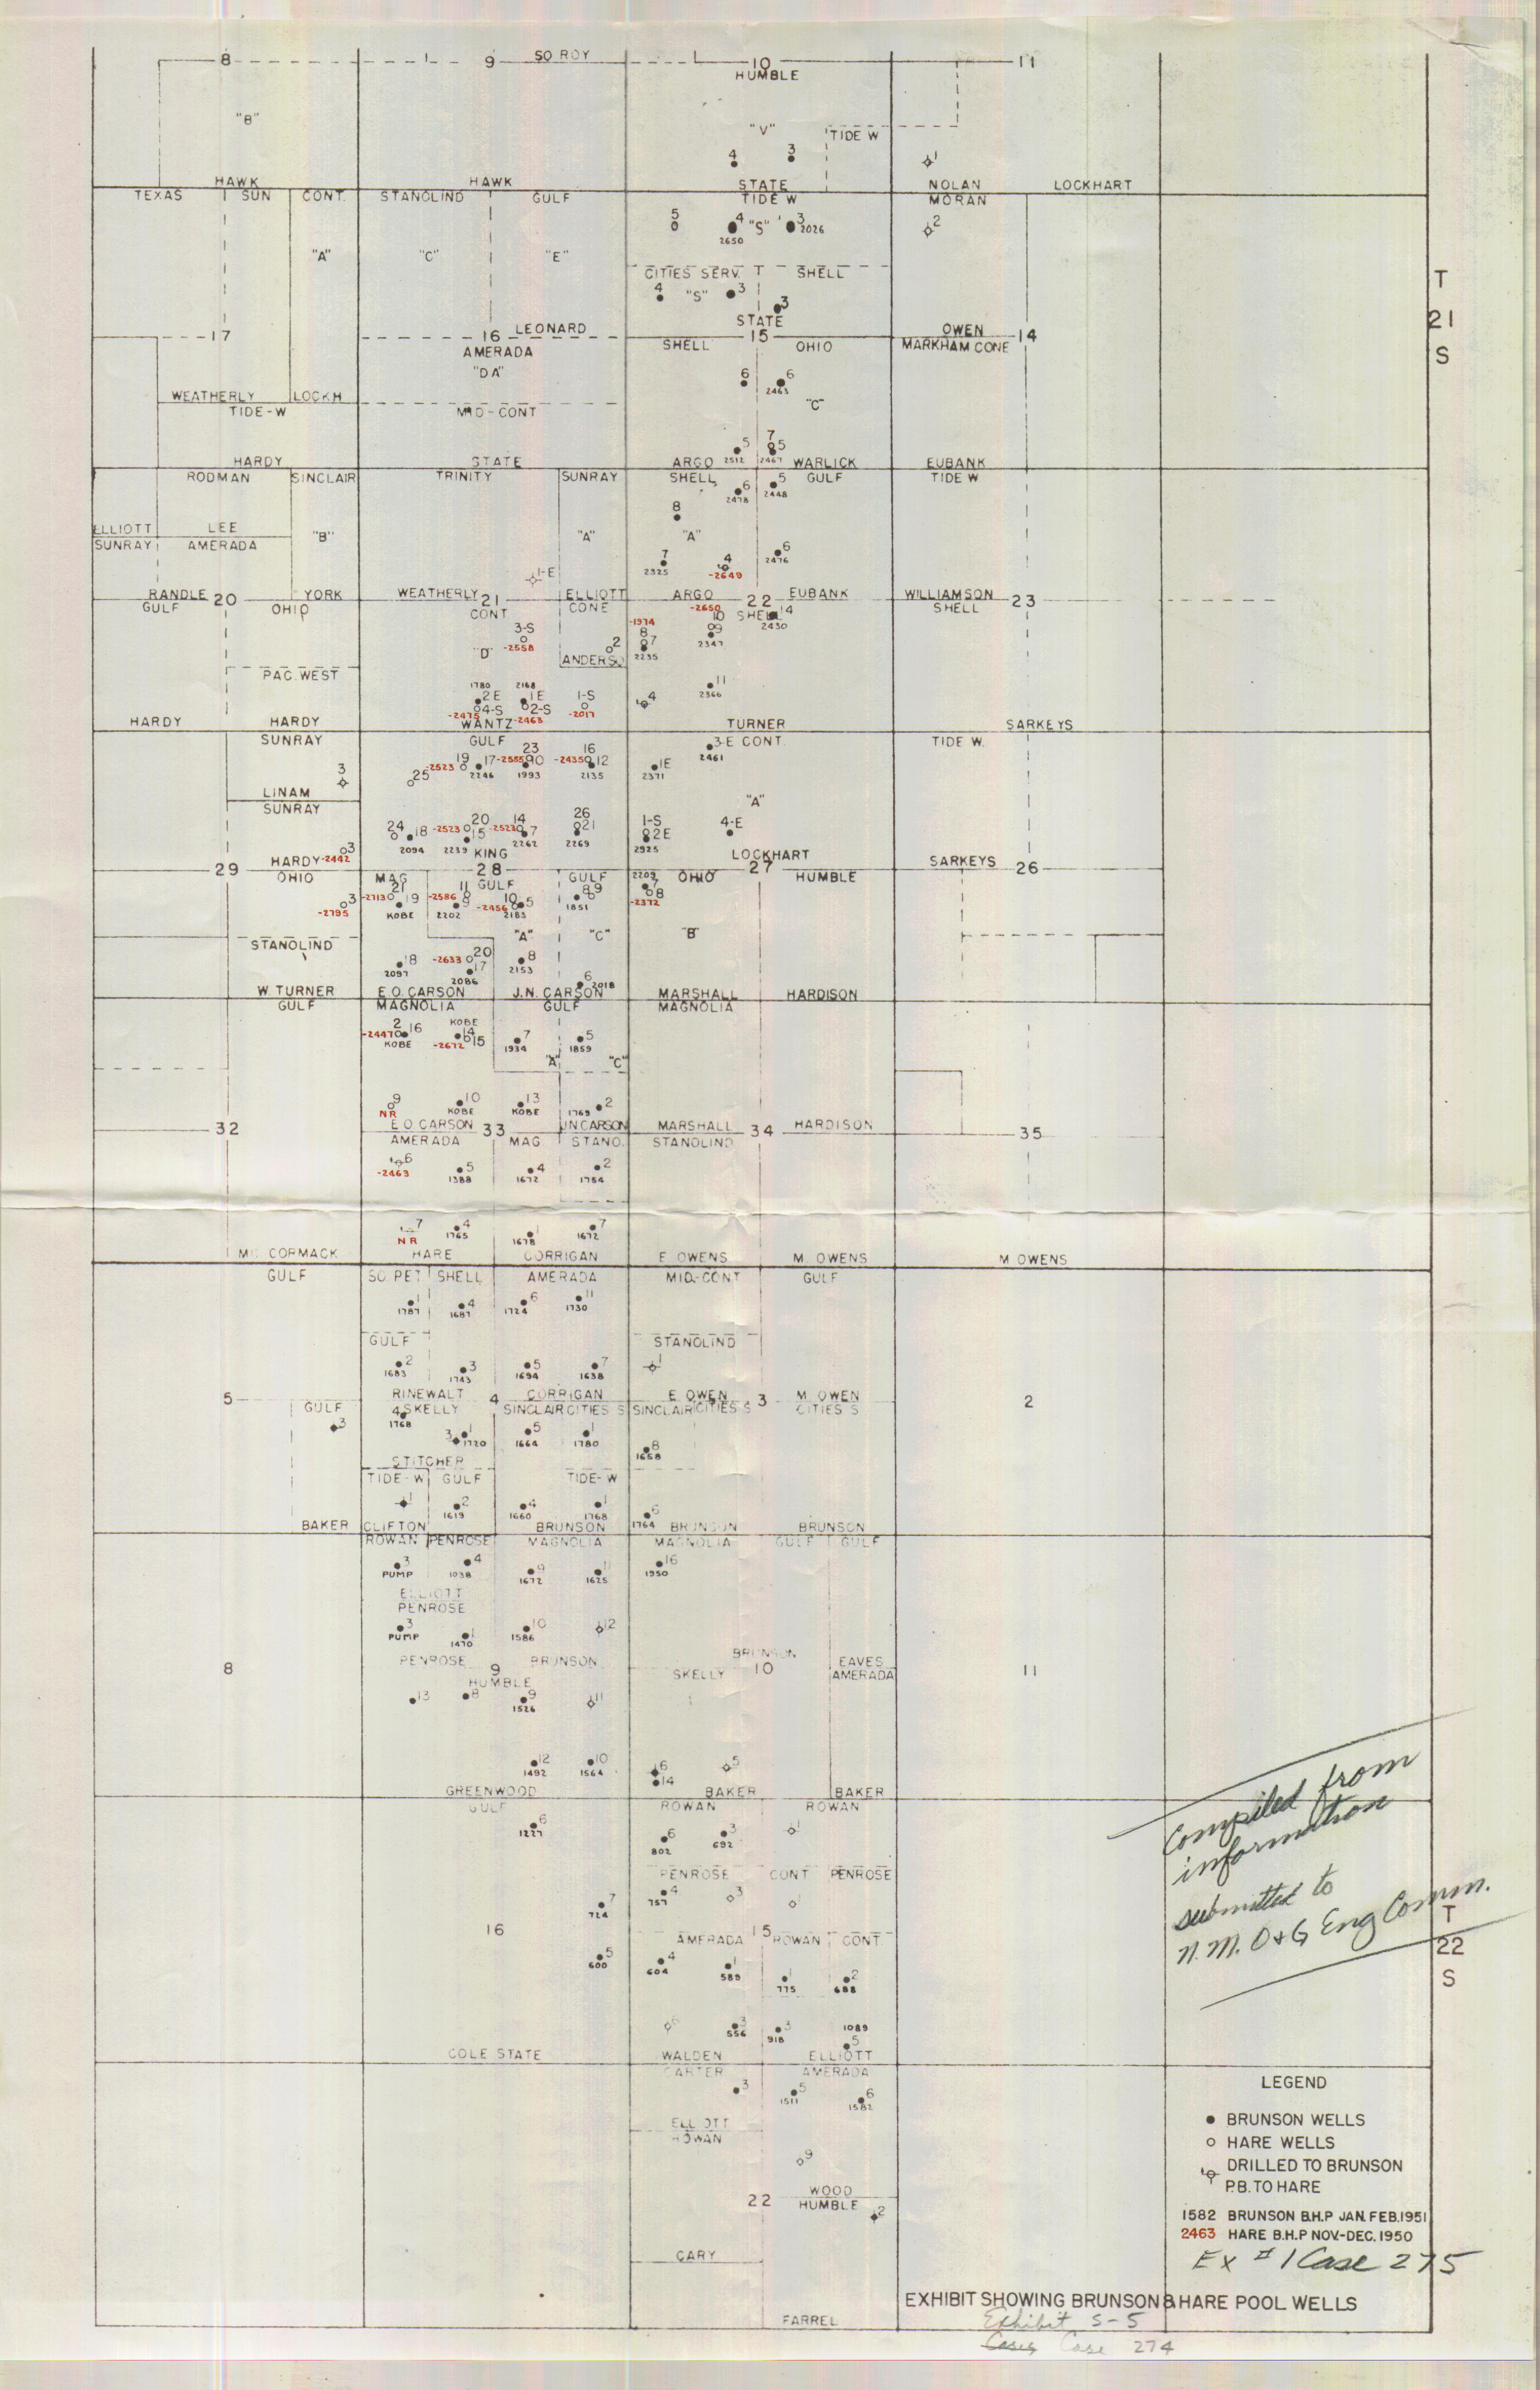 8 9 SO ROY 10 11
HUMBLE
"B" "V" TIDE W
4 3 1
HAWK HAWK STATE NOLAN LOCKHART
TEXAS SUN CONT. STANOLIND GULF TIDE W MORAN
5 4 "S" 3 2026 2
2650
"A" "C" "E"
CITIES SERV. SHELL
4 "S" 3 3
STATE
17 16 LEONARD 15 OWEN 14
AMERADA SHELL OHIO MARKHAM CONE
"DA"
6 6
2463
WEATHERLY LOCKH "C"
TIDE-W MID-CONT
5 7 5
2512 2467
HARDY STATE ARGO WARLICK EUBANK
RODMAN SINCLAIR TRINITY SUNRAY SHELL GULF TIDE W
6 5
2478 2448
8
ELLIOTT LEE "B" "A" "A"
SUNRAY AMERADA
7 4 6
2325 -2649 2476
1-E
RANDLE 20 YORK WEATHERLY 21 ELLIOTT ARGO 22 EUBANK WILLIAMSON 23
GULF OHIO CONT CONE -2650 SHELL SHELL
-1974 10 14
3-S 8 9 2430
"D" -2558 2 7 2347
ANDERSO 2235
PAC. WEST
1780 2168 11
2E 1E 1-S 4 2366
4-S 2-S
-2475 -2463 -2017
HARDY HARDY WANTZ TURNER SARKEYS
SUNRAY GULF 3-E CONT. TIDE W.
23 16 2461
3 25 -2523 19 17 -2585 10 -2435 12 1E
2246 1993 2135 2371
LINAM "A"
SUNRAY
24 18 20 14 26 1-S 4-E
-2523 15 -2523 7 21 2E
2094 2239 2262 2269 2925
3
HARDY -2442 KING LOCKHART SARKEYS
29 28 27 26
OHIO MAG GULF GULF 2209 OHIO HUMBLE
3 21 11 7
-2795 -2713 19 -2586 9 10 5 8 9 8
KOBE 2202 -2456 2183 1851 -2372
"A" "C" "B"
STANOLIND
18 -2633 20 8
2097 17 2153
2086 6 2018
W. TURNER E.O. CARSON J.N. CARSON MARSHALL HARDISON
GULF MAGNOLIA GULF MAGNOLIA
2 16 KOBE
-2447 14 7 5
KOBE -2672 15 1934 1859
"A" "C"
9 10 13 2
NR KOBE KOBE 1769
E.O. CARSON J.N. CARSON MARSHALL HARDISON
32 33 34 35
AMERADA MAG STANO. STANOLIND
6 5 4 2
-2463 1388 1672 1754
7 4 1 7
NR 1765 1678 1672
MC CORMACK HARE CORRIGAN E. OWENS M. OWENS M OWENS
GULF SO. PET SHELL AMERADA MID-CONT GULF
1 4 6 11
1787 1687 1724 1730
GULF STANOLIND
2 3 5 7 1
1683 1743 1694 1638
RINEWALT CORRIGAN E. OWEN M. OWEN
5 4 3 2
GULF 4 SKELLY SINCLAIR CITIES S SINCLAIR CITIES S CITIES S
3 1768
3 1 5 1 8
1720 1664 1780 1658
STITCHER
TIDE-W GULF TIDE-W
1 2 4 1 6
1619 1660 1768 1764
BAKER CLIFTON BRUNSON BRUNSON BRUNSON
ROWAN PENROSE MAGNOLIA MAGNOLIA GULF GULF
3 4 9 11 16
PUMP 1038 1672 1625 1350
ELLIOTT
PENROSE
3 1 10 12
PUMP 1470 1586
PENROSE BRUNSON BRUNSON EAVES
8 9 SKELLY 10 AMERADA 11
HUMBLE
13 8 9 11
1526
12 10 6 5
1492 1564 14
GREENWOOD BAKER BAKER
GULF ROWAN ROWAN
6 6 3 1
1227 802 692
PENROSE CONT PENROSE
7 4 3 1
724 757
16 AMERADA 15 ROWAN CONT.
5 4 1 1 2
600 604 589 775 688
6 3 3 1089
556 918 5
COLE STATE WALDEN ELLIOTT
CARTER AMERADA
3 5 6
1511 1582
ELLIOTT
ROWAN
9
WOOD
22 HUMBLE
2
CARY
FARREL
T
21
S
Compiled from
information
submitted to
N.M. O+G Eng Comm.
T
22
S
LEGEND
BRUNSON WELLS
HARE WELLS
DRILLED TO BRUNSON
P.B. TO HARE
1582 BRUNSON B.H.P JAN. FEB. 1951
2463 HARE B.H.P NOV.-DEC. 1950
Ex #1 Case 275
EXHIBIT SHOWING BRUNSON & HARE POOL WELLS
Exhibit S-5
Cases Case 274